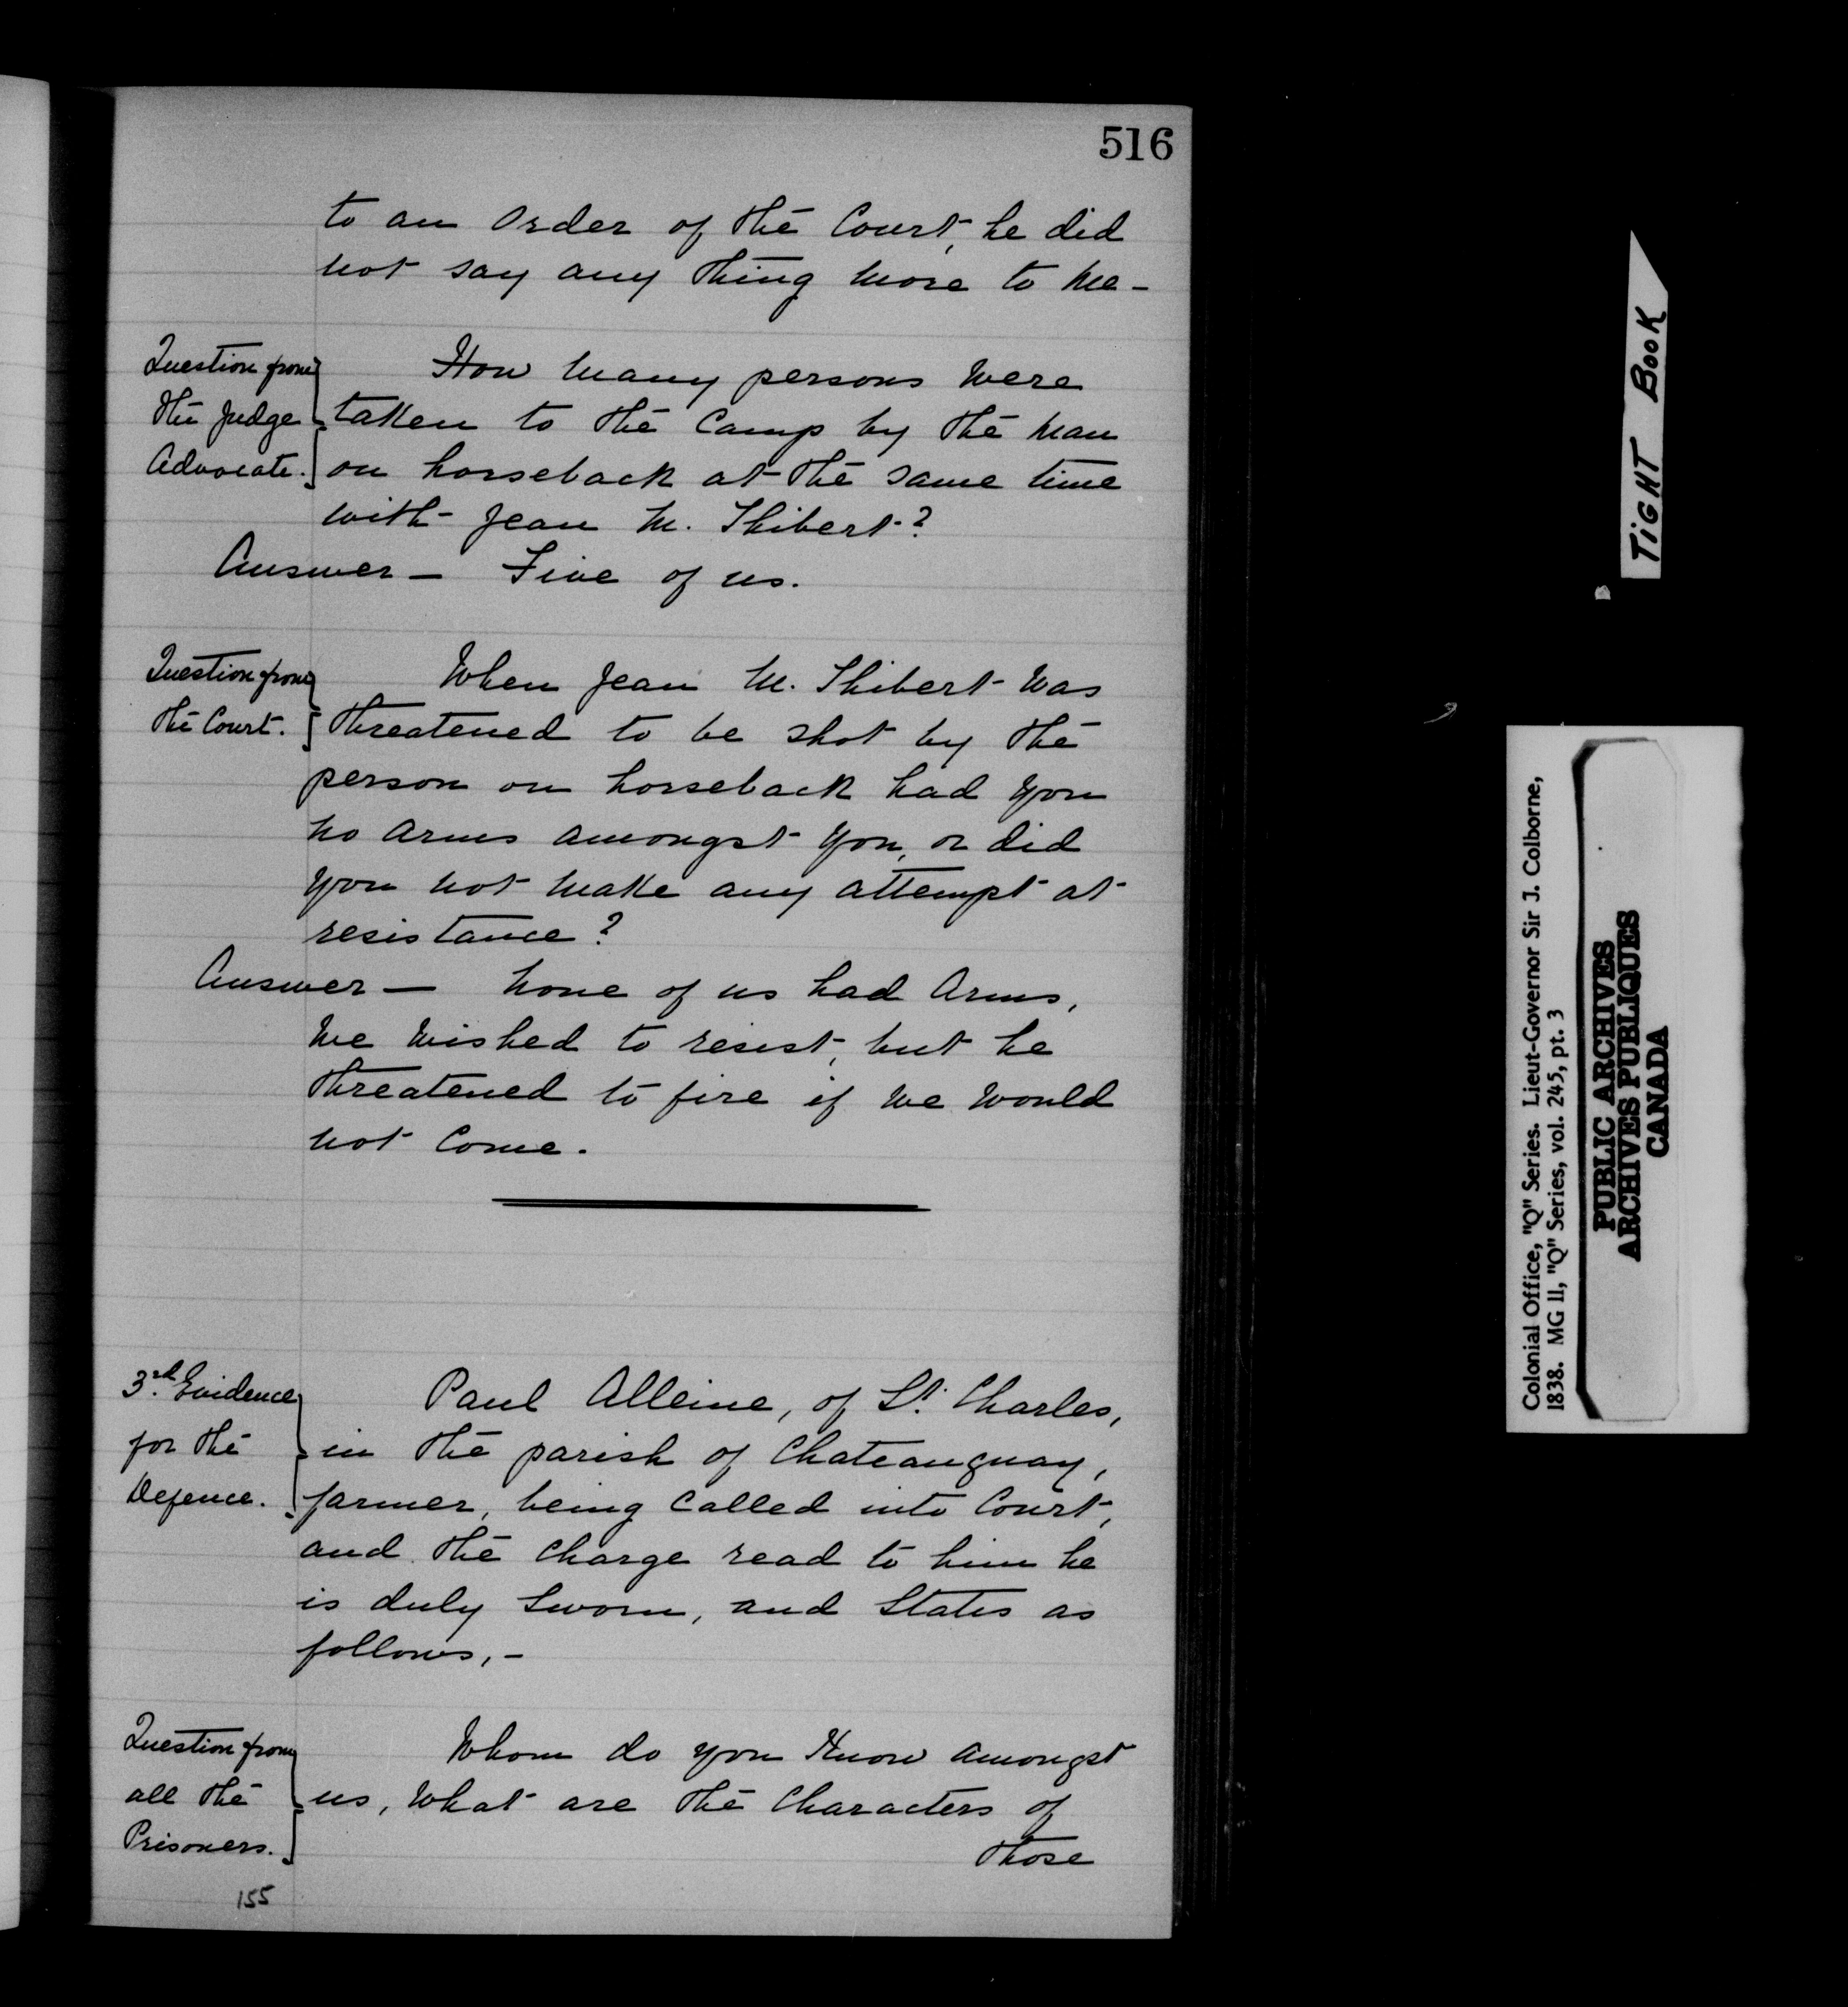 516
to an Order of the Court, he did
not say any thing more to me -
Question from
the Judge
Advocate.
How many persons were
taken to the Camp by the man
on horseback at the same time
with Jean M. Thibert?
Answer - Five of us.
Question from
the Court.
When Jean M. Thibert was
threatened to be shot by the
person on horseback had you
no arms amongst you, or did
you not make any attempt at
resistance?
Answer - None of us had Arms,
We wished to resist, but he
threatened to fire if we would
not Come.
3rd. Evidence
for the
Defence.
Paul Alleine, of St. Charles,
in the parish of Chateauguay,
farmer, being called into Court,
and the Charge read to him he
is duly Sworn, and States as
follows, -
Question from
all the
Prisoners.
Whom do you Know amongst
us, What are the Characters of
those
155
TIGHT BOOK
Colonial Office, "Q" Series. Lieut-Governor Sir J. Colborne,
1838. MG 11, "Q" Series, vol. 245, pt. 3
PUBLIC ARCHIVES
ARCHIVES PUBLIQUES
CANADA